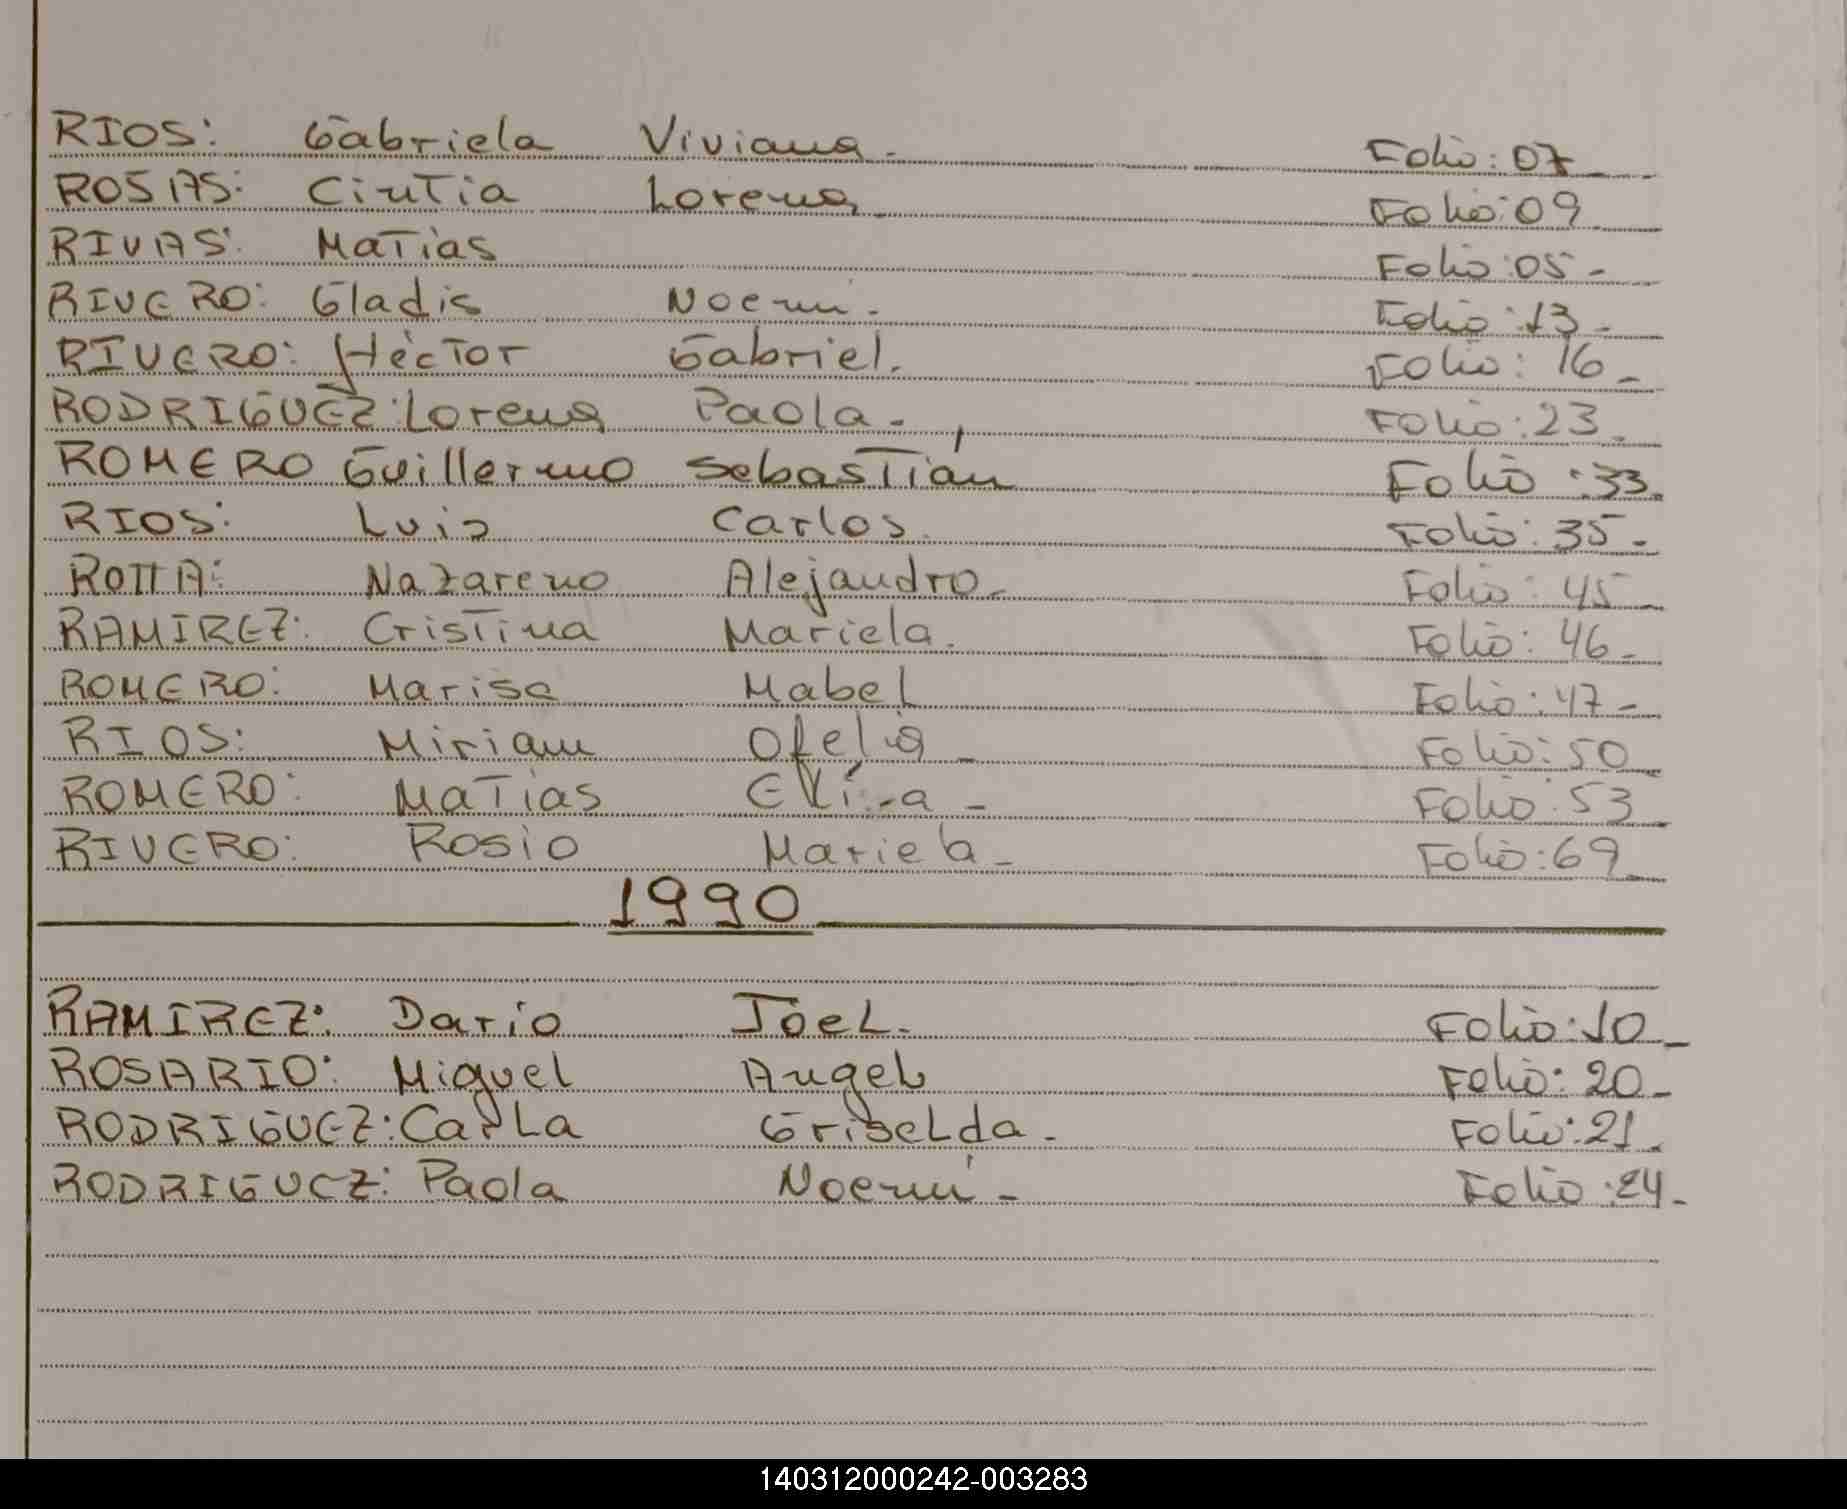 RIOS: Gabriela Viviana. Folio: 07
ROSAS: Cintia Lorena Folio: 09
RIVAS: Matías Folio: 05
RIVERO: Gladis Noemi. Folio: 13
RIVERO: Héctor Gabriel. Folio: 16
RODRIGUEZ: Lorena Paola. Folio: 23
ROMERO Guillermo Sebastián Folio: 33
RIOS: Luis Carlos. Folio: 35
ROTTA: Nazareno Alejandro. Folio: 45
RAMIREZ: Cristina Mariela. Folio: 46
ROMERO: Marisa Mabel Folio: 47
RIOS: Miriam Ofelia Folio: 50
ROMERO: Matías Folio: 53
RIVERO: Rosio Mariela Folio: 69
1990
RAMIREZ: Dario JoeL. Folio: 10
ROSARIO: Miguel Angel Folio: 20
RODRIGUEZ: CarLa GriseLda. Folio: 21
RODRIGUEZ: Paola Noemí Folio: 24
140312000242-003283